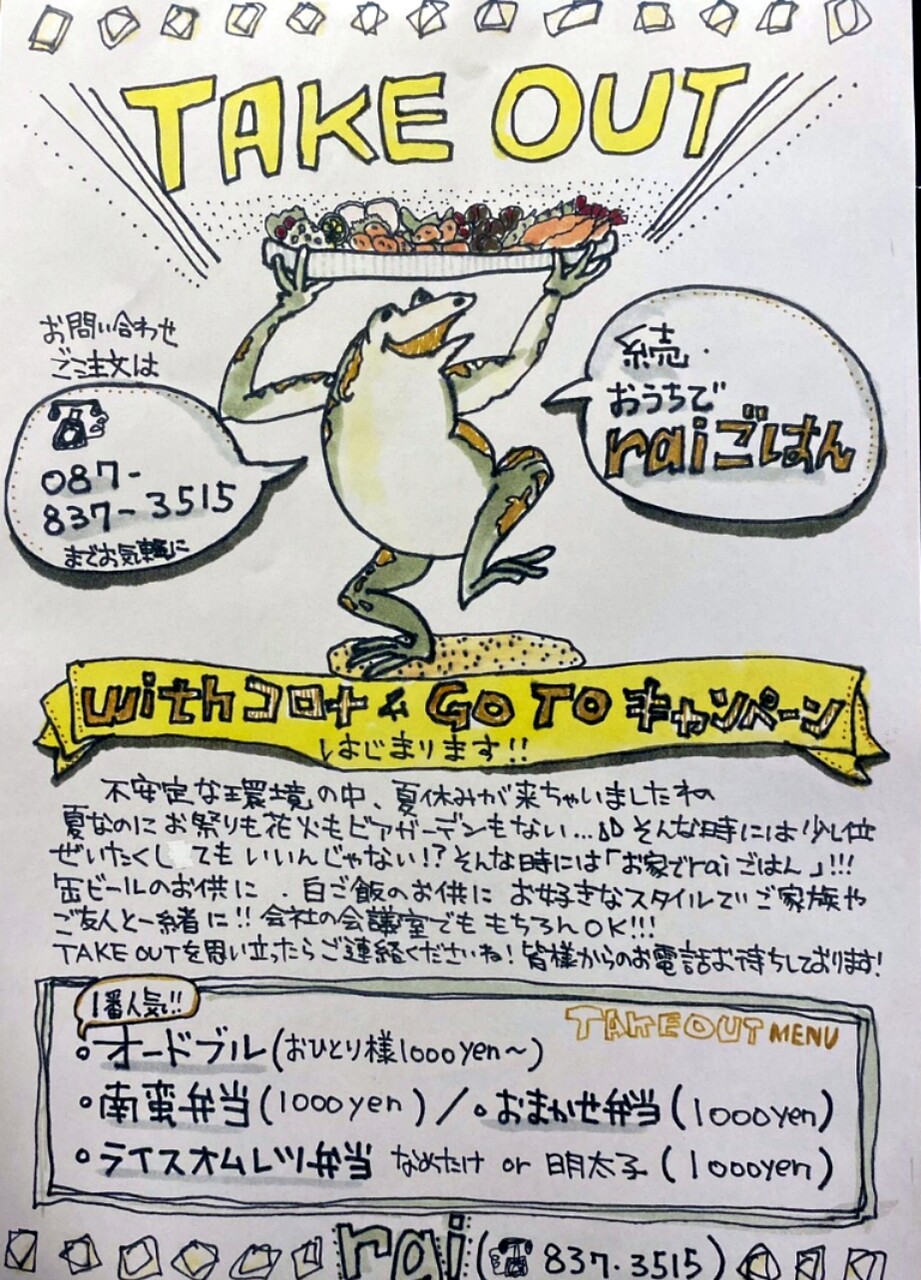 TAKE OUT
お問い合わせ
ご注文は
087-
837-3515
までお気軽に
続・
おうちで
raiごはん
withコロナ & GO TO キャンペーン
はじまります!!
不安定な環境の中、夏休みが来ちゃいましたね
夏なのにお祭りも花火もビアガーデンもない...そんな時には少し位
ぜいたくしてもいいんじゃない!?そんな時には「お家でraiごはん」!!!
缶ビールのお供に、白ご飯のお供に お好きなスタイルでご家族や
ご友人と一緒に!!会社の会議室でももちろんOK!!!
TAKE OUTを思い立ったらご連絡くださいね!皆様からのお電話お待ちしております!
1番人気!!
TAKE OUT MENU
・オードブル(おひとり様1000yen〜)
・南蛮弁当(1000yen)/・おまかせ弁当(1000yen)
・ライスオムレツ弁当 なめたけ or 明太子(1000yen)
rai(837・3515)